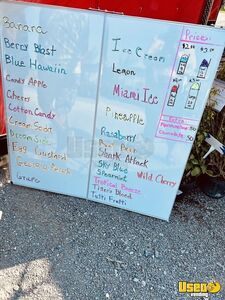 Banana
Berry Blast
Blue Hawaiin
Candy Apple
Cherry
Cotton Candy
Cream Soda
Dream Sicle
Egg Custard
Georgia Peach
Grape
Ice Cream
Lemon
Miami Ice
Pineapple
Raspberry
Root Beer
Shark Attack
Sky Blue
Wild Cherry
Spearmint
Tropical Breeze
Tiger's Blood
Tutti Frutti
Price:
Extra
Marshmallow 50
Chocolate 50
Used
Vending